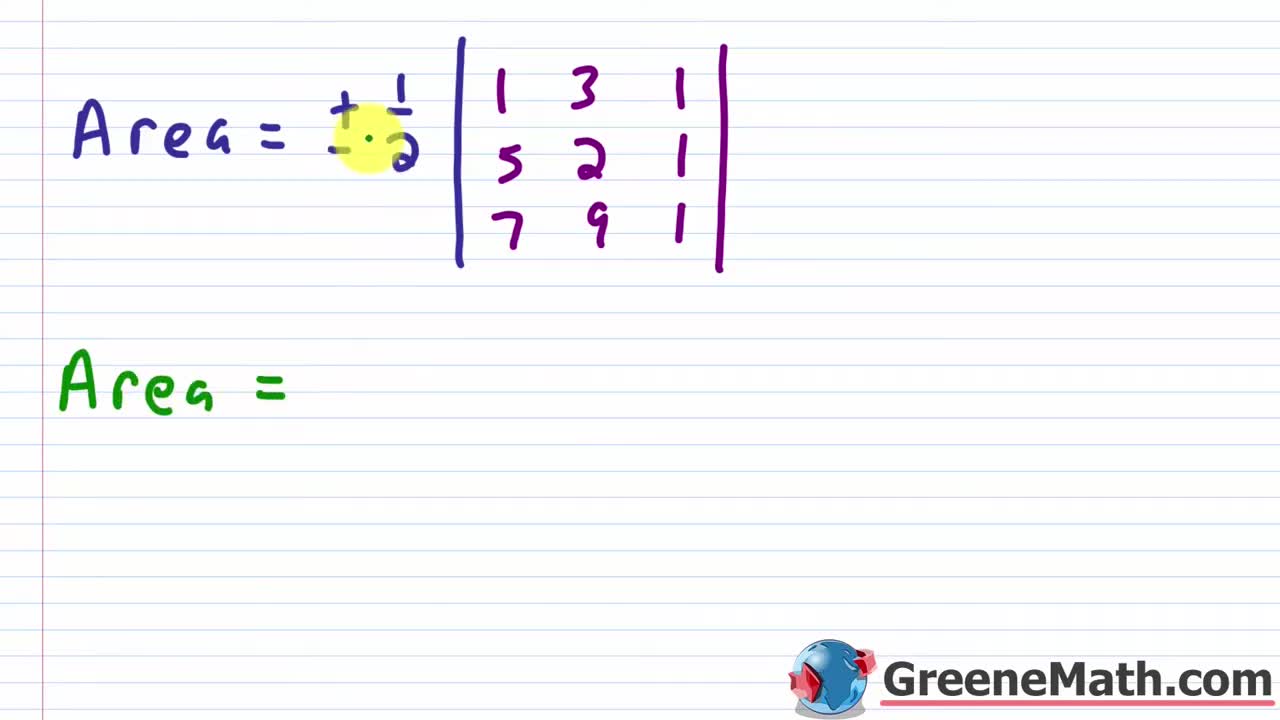 Area = ± 1/2 | 1 3 1 |
| 5 2 1 |
| 7 9 1 |
Area =
GreeneMath.com